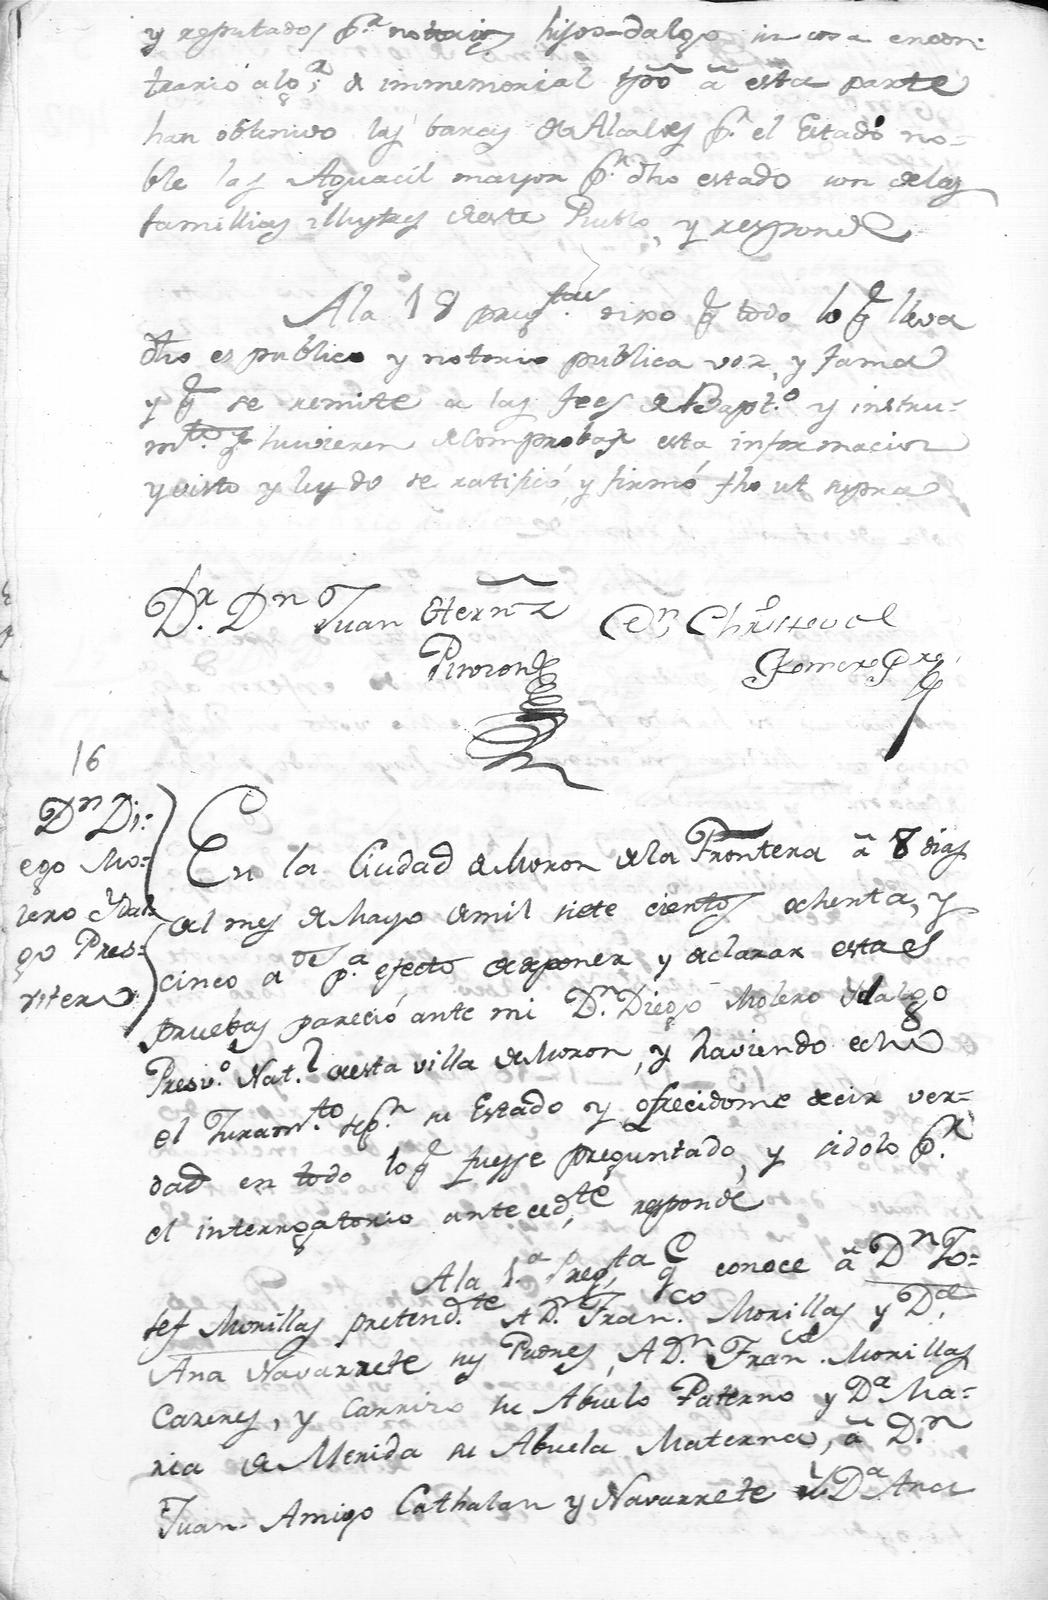 y reputados pª notorios hijos-dalgo sin cosa encon-
trario algª; de immemorial tpõ â esta parte
han obtenivo las baras de Alcaldes pr el Estado no-
ble las Aguacil mayor pr dho estado son de las
famillias illustres de esta Pueblo, y responde
A la 18 pregtas. dixo q̃ todo lo q̃ lleva
dho es publico y notorio publica voz, y fama
y q̃ se remite a las fees de Bapt.º y instru-
mtos. q̃ huvieren de comprobar esta informacion
y visto y leydo se ratificó, y firmó fho ut supra
Dr. Dn Juan Hernz
Dn Christoval
Romero Pre.
16
Dn Di-
ego Mo-
lero Ydal-
go Pres-
vitero
En la Ciudad de Moron de la Frontera â 8 dias
del mes de Mayo de mil siete cientos ochenta, y
cinco a
os pª. efecto de exponer y declarar esta el
pruebas pareció ante mi Dn. Diego Molero Ydalgo
Presvº. Nat.l de esta villa de Moron, y haviendo echo
el Juram.to segn su Estado y ofrecidome decir ver-
dad en todo lo q̃ fuesse preguntado, y sidolo pr.
el interrogatorio anteced.te responde
A la 1.ª Pregta q̃ conoce â Dn Jo-
sef Morillas pretend.te A Dn. Franco. Morillas y Dª.
Ana Navarrete sus Padres, A Dn. Franco. Morillas
Cazeres, y Carrizo su Abuelo Paterno y Dª Ma-
ria de Merida su Abuela Materna, â Dn
Juan Amigo Cathalan y Navarrete Dª Ana